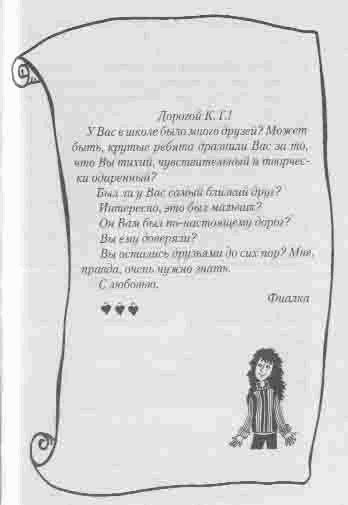 Дорогой К. Г.!
У Вас в школе было много друзей? Может
быть, крутые ребята дразнили Вас за то,
что Вы тихий, чувствительный и творчес-
ки одаренный?
Был ли у Вас самый близкий друг?
Интересно, это был мальчик?
Он Вам был по-настоящему дорог?
Вы ему доверяли?
Вы остались друзьями до сих пор? Мне,
правда, очень нужно знать.
С любовью,
Фиалка